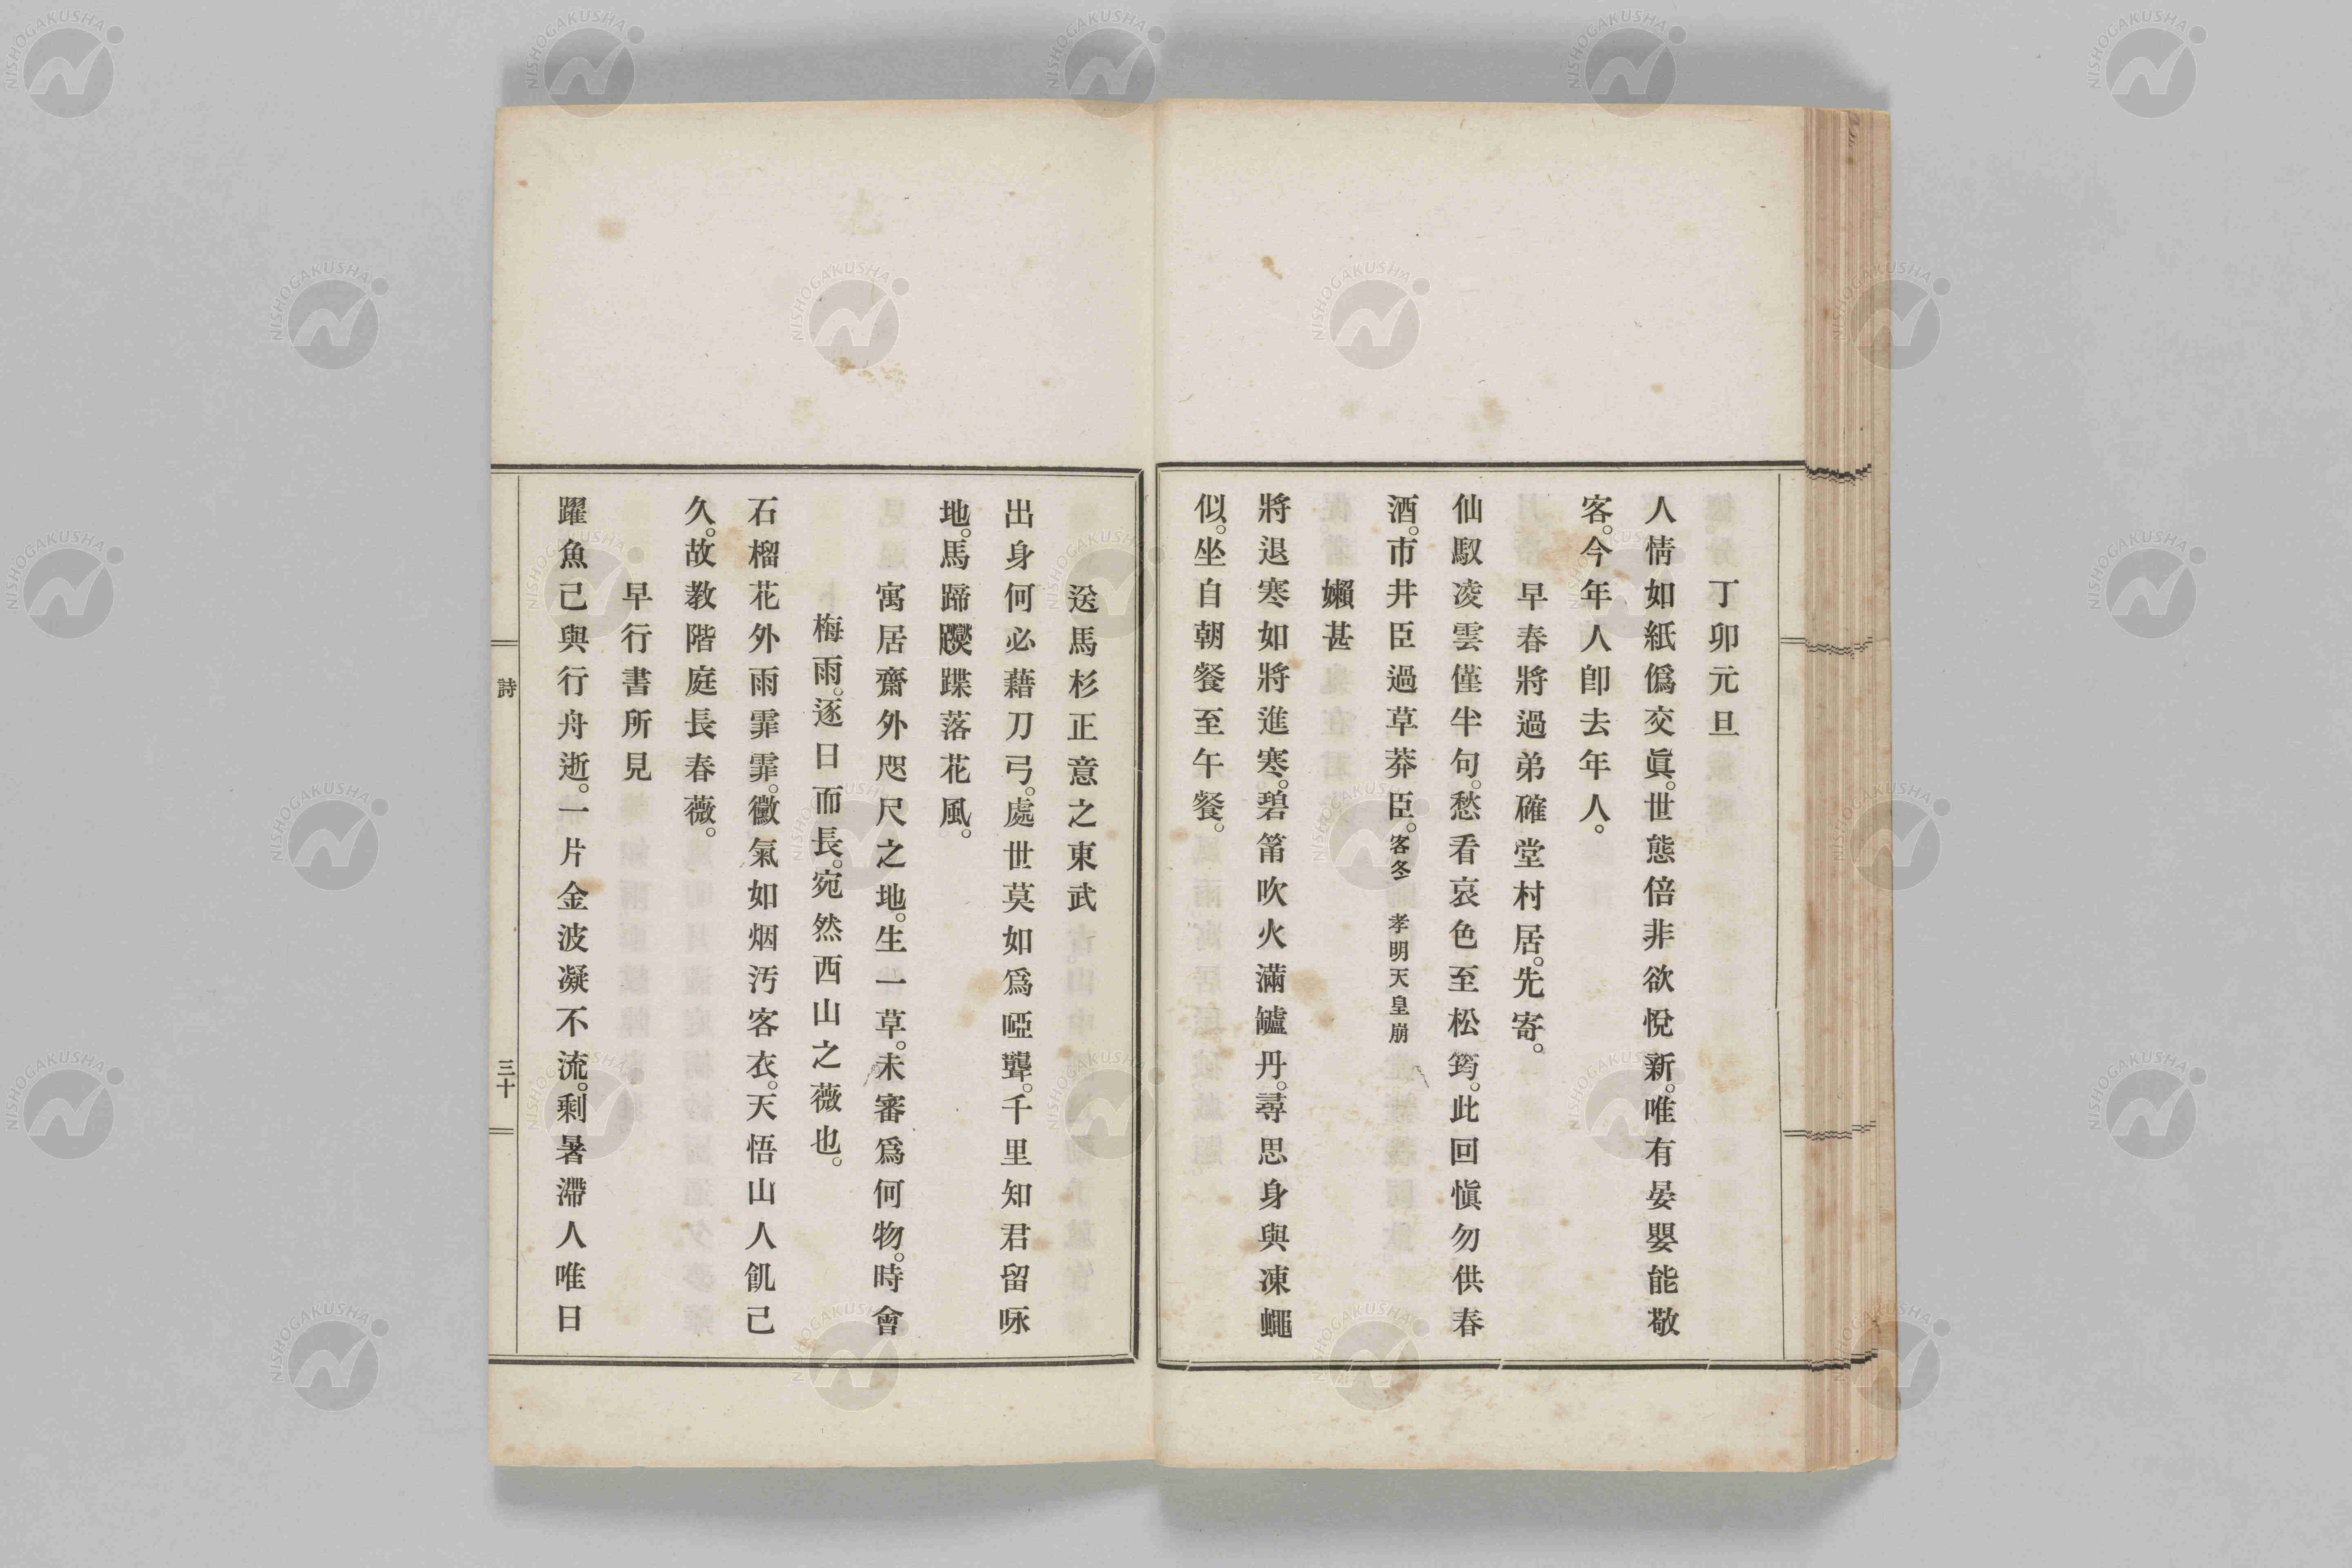 丁卯元旦
人情如紙僞交眞。世態倍非欲悅新。唯有晏嬰能敬
客。今年人卽去年人。
早春將過弟確堂村居。先寄。
仙馭凌雲僅半句。愁看哀色至松筠。此回愼勿供春
酒。市井臣過草莽臣。客冬 孝明天皇崩
嬾甚
將退寒如將進寒。碧筩吹火滿罏丹。尋思身與凍蠅
似。坐自朝餐至午餐。
送馬杉正意之東武
出身何必藉刀弓。處世莫如爲啞聾。千里知君留咏
地。馬蹄躞蹀落花風。
寓居齋外咫尺之地。生一草。未審爲何物。時會
梅雨。逐日而長。宛然西山之薇也。
石榴花外雨霏霏。黴氣如烟汚客衣。天悟山人飢己
久。故敎階庭長春薇。
早行書所見
躍魚己與行舟逝。一片金波凝不流。剩暑滯人唯日
詩
三十
NISHOGAKUSHA